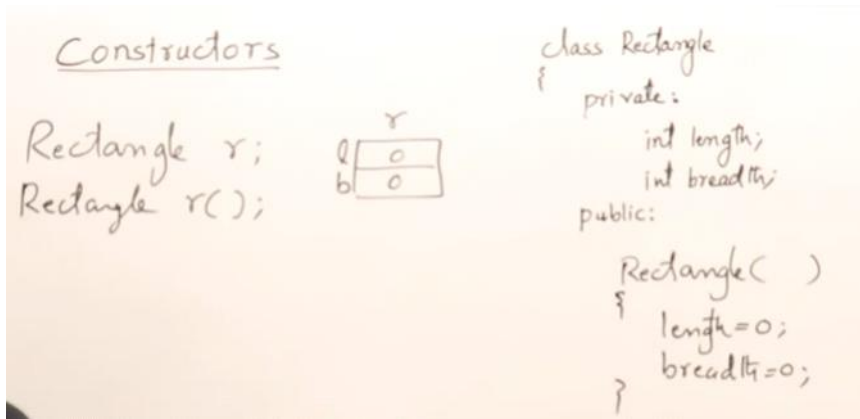 Constructors
Rectangle r;
Rectangle r();
r
l 0
b 0
class Rectangle
{
private:
int length;
int breadth;
public:
Rectangle( )
{
length=0;
breadth=0;
}